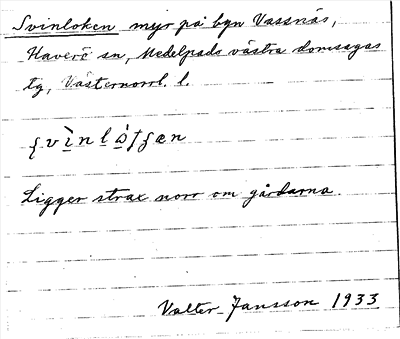 Svinloken myr på byn Vassnäs,
Haverö sn, Medelpads västra domsagas
tg, Västernorrl. l.
Ligger strax norr om gårdarna.
Valter Jansson 1933